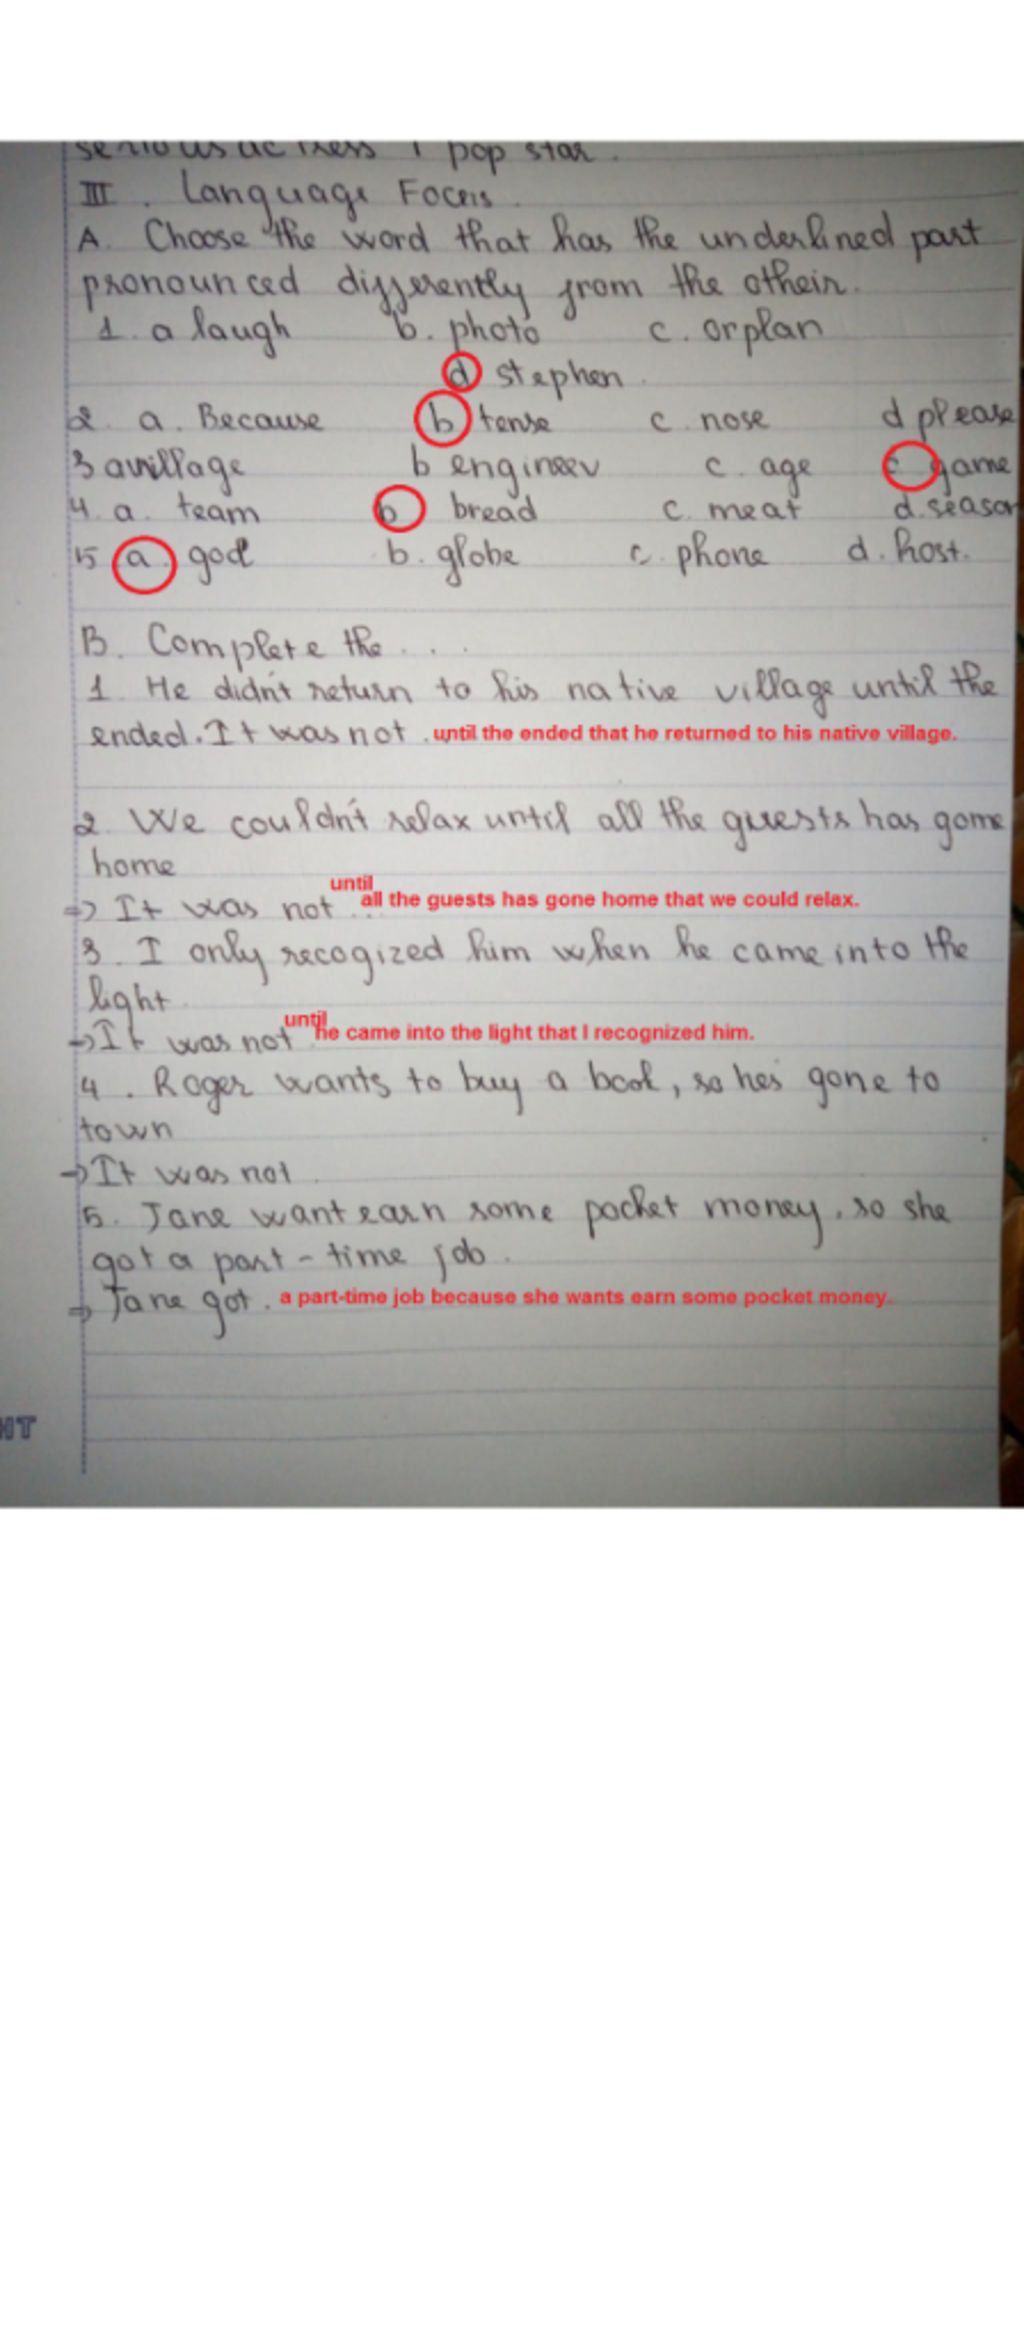 serious actress / pop star.
III. Language Focus.
A. Choose the word that has the underlined part
pronounced differently from the otheir.
1. a laugh b. photo c. orplan
d stephen.
2. a. Because b tense c. nose d please
3 a village b engineer c. age c game
4. a. team b bread c. meat d. season
5 a. god b. globe c. phone d. host.
B. Complete the ...
1 He didn't return to his native village until the
ended. It was not . until the ended that he returned to his native village.
2. We couldn't relax until all the guests has gome
home
=> It was not ... until all the guests has gone home that we could relax.
3. I only recogized him when he came into the
light.
-> It was not until he came into the light that I recognized him.
4. Roger wants to buy a book, so hes gone to
town
-> It was not.
5. Jane want earn some pocket money, so she
got a part-time job.
=> Jane got. a part-time job because she wants earn some pocket money.
HT